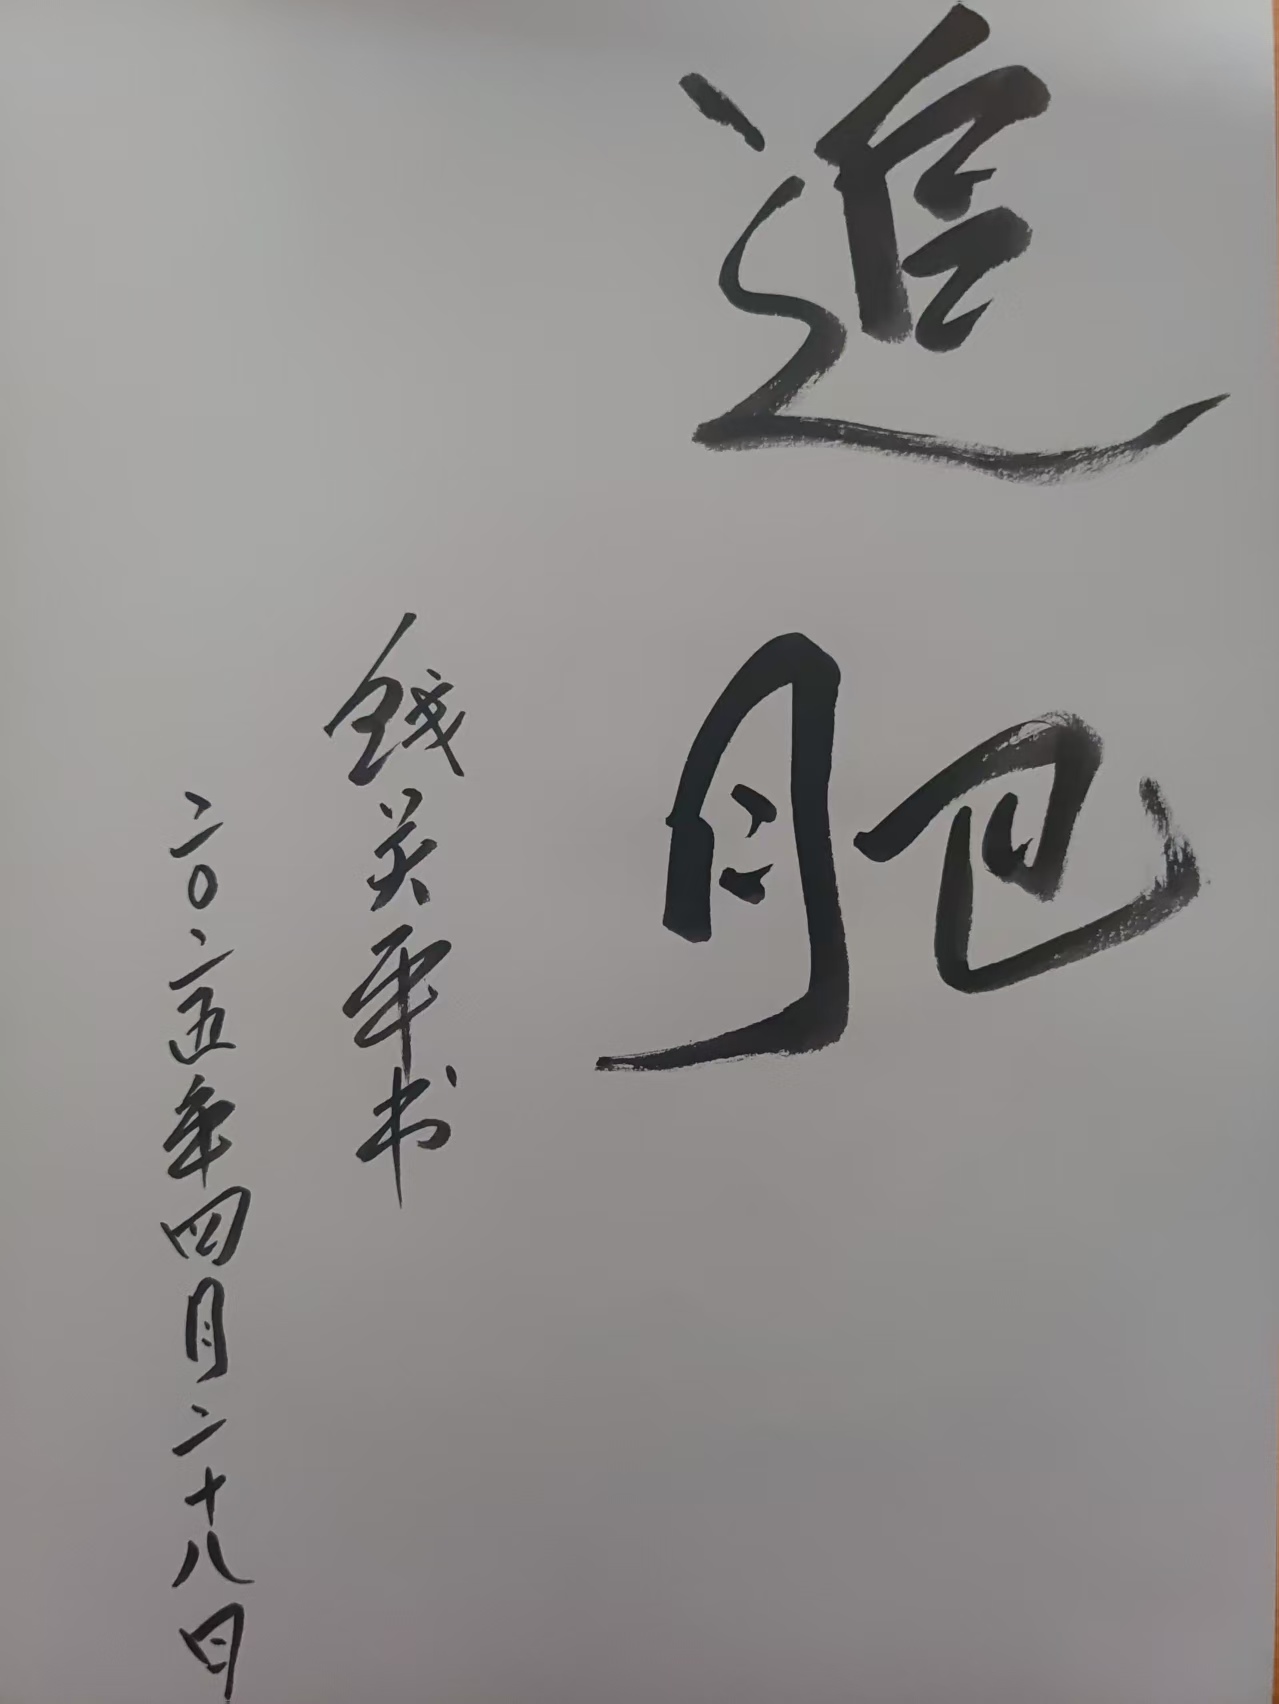 追肥
钱关平书
二〇二五年四月二十八日